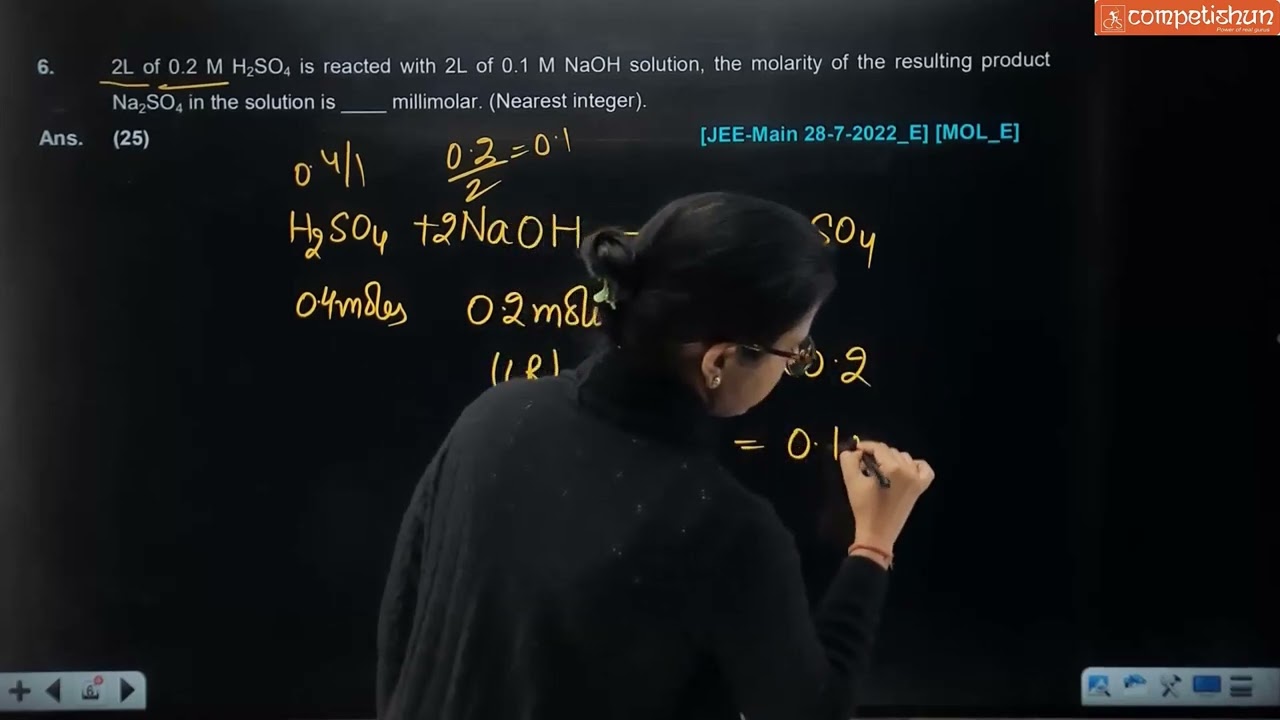 competishun
Power of real gurus
6. 2L of 0.2 M H₂SO₄ is reacted with 2L of 0.1 M NaOH solution, the molarity of the resulting product
Na₂SO₄ in the solution is ____ millimolar. (Nearest integer).
Ans. (25) [JEE-Main 28-7-2022_E] [MOL_E]
0.4/1 0.2/2 = 0.1
H₂SO₄ + 2NaOH SO₄
0.4 moles 0.2 mole
(LR) 0.2
= 0.1
6